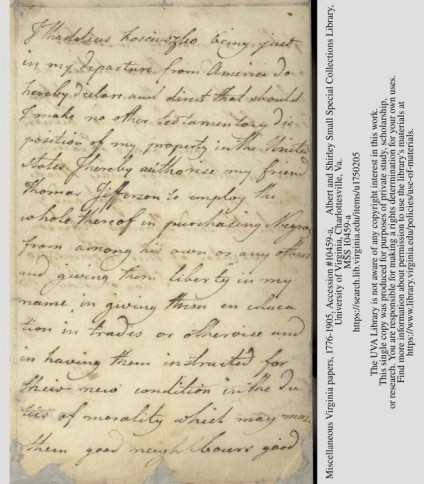 I Thaddeus Kosciuszko being just
in my departure from America do
hereby declare and direct that should
I make no other testamentary dis
position of my property in the United
States I hereby authorise my friend
Thomas Jefferson to employ the
whole thereof in purchasing Negroes
from among his own or any others
and giving them liberty in my
name in giving them en educa
tion in trades or otherwise and
in having them instructed for
their new condition in the du
ties of morality which may make
them good neighbours good
Miscellaneous Virginia papers, 1776-1905, Accession #10459-a, Albert and Shirley Small Special Collections Library,
University of Virginia, Charlottesville, Va.
MSS 10459-a
https://search.lib.virginia.edu/items/u1750205
The UVA Library is not aware of any copyright interest in this work.
This single copy was produced for purposes of private study, scholarship,
or research. You are responsible for making a rights determination for your own uses.
Find more information about permission to use the library's materials at
https://www.library.virginia.edu/policies/use-of-materials.